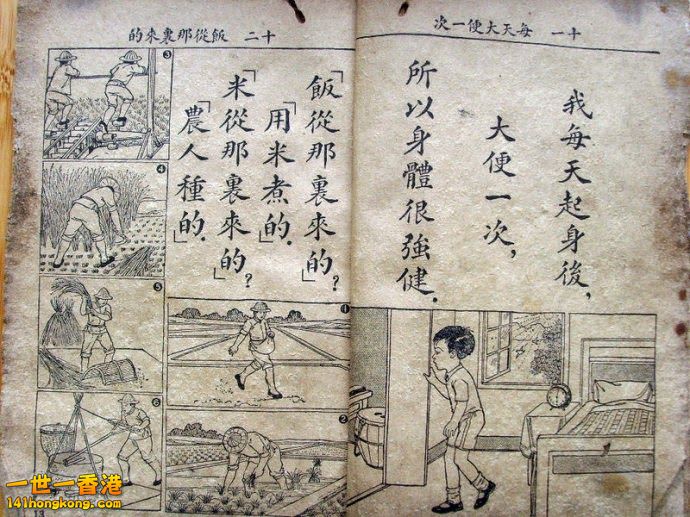 十一 每天大便一次
我每天起身後，
大便一次，
所以身體很強健．
十二 飯從那裏來的
「飯從那裏來的」？
「用米煮的」．
「米從那裏來的」？
「農人種的」．
1
2
3
4
5
6
一世一香港
141hongkong.com